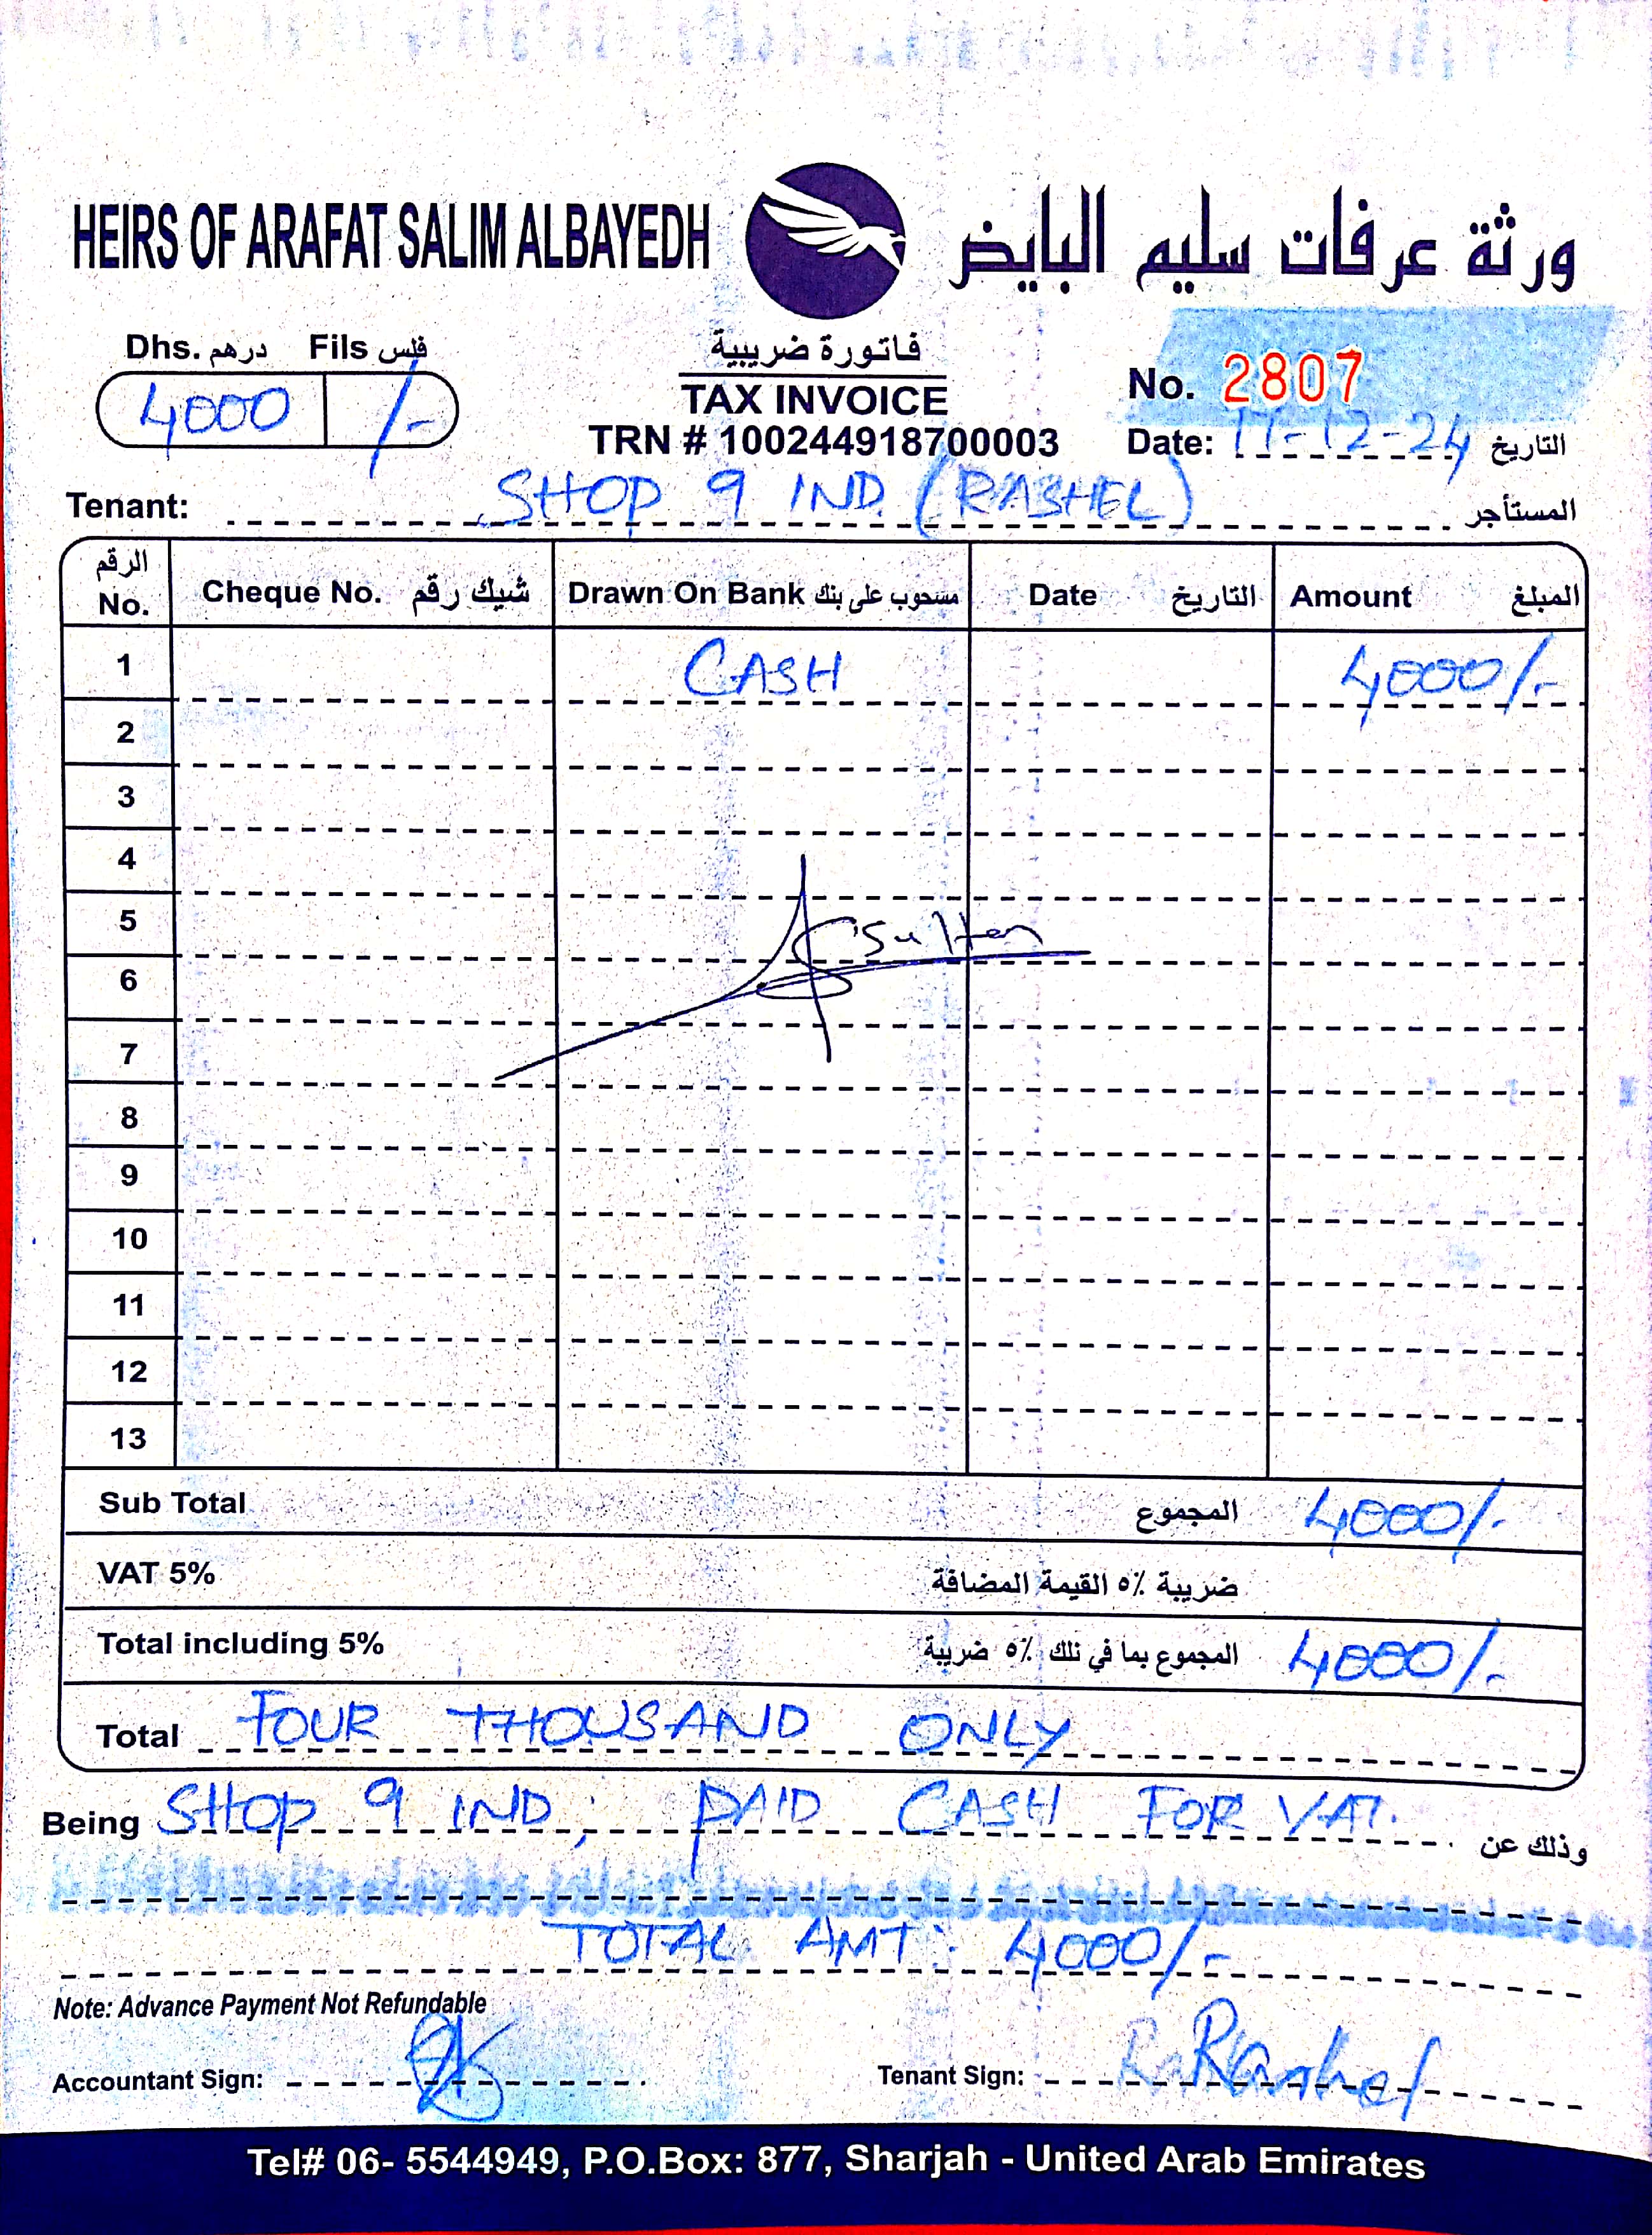 HEIRS OF ARAFAT SALIM ALBAYEDH ورثة عرفات سليم البايض
Dhs. درهم Fils فلس
4000 /-
فاتورة ضريبية
TAX INVOICE
TRN # 100244918700003
No. 2807
Date: 11-12-24 التاريخ
Tenant: SHOP 9 IND. (RASHEL) المستأجر
الرقم No. Cheque No. شيك رقم Drawn On Bank مسحوب على بنك Date التاريخ Amount المبلغ
1 CASH 4000/-
2
3
4
5 Sultan
6
7
8
9
10
11
12
13
Sub Total المجموع 4000/-
VAT 5% ضريبة ٥٪ القيمة المضافة
Total including 5% المجموع بما في تلك ٥٪ ضريبة 4000/-
Total FOUR THOUSAND ONLY
Being SHOP 9 IND; PAID CASH FOR VAT. وذلك عن
TOTAL AMT: 4000/-
Note: Advance Payment Not Refundable
Accountant Sign: Tenant Sign: R.Rashel
Tel# 06- 5544949, P.O.Box: 877, Sharjah - United Arab Emirates